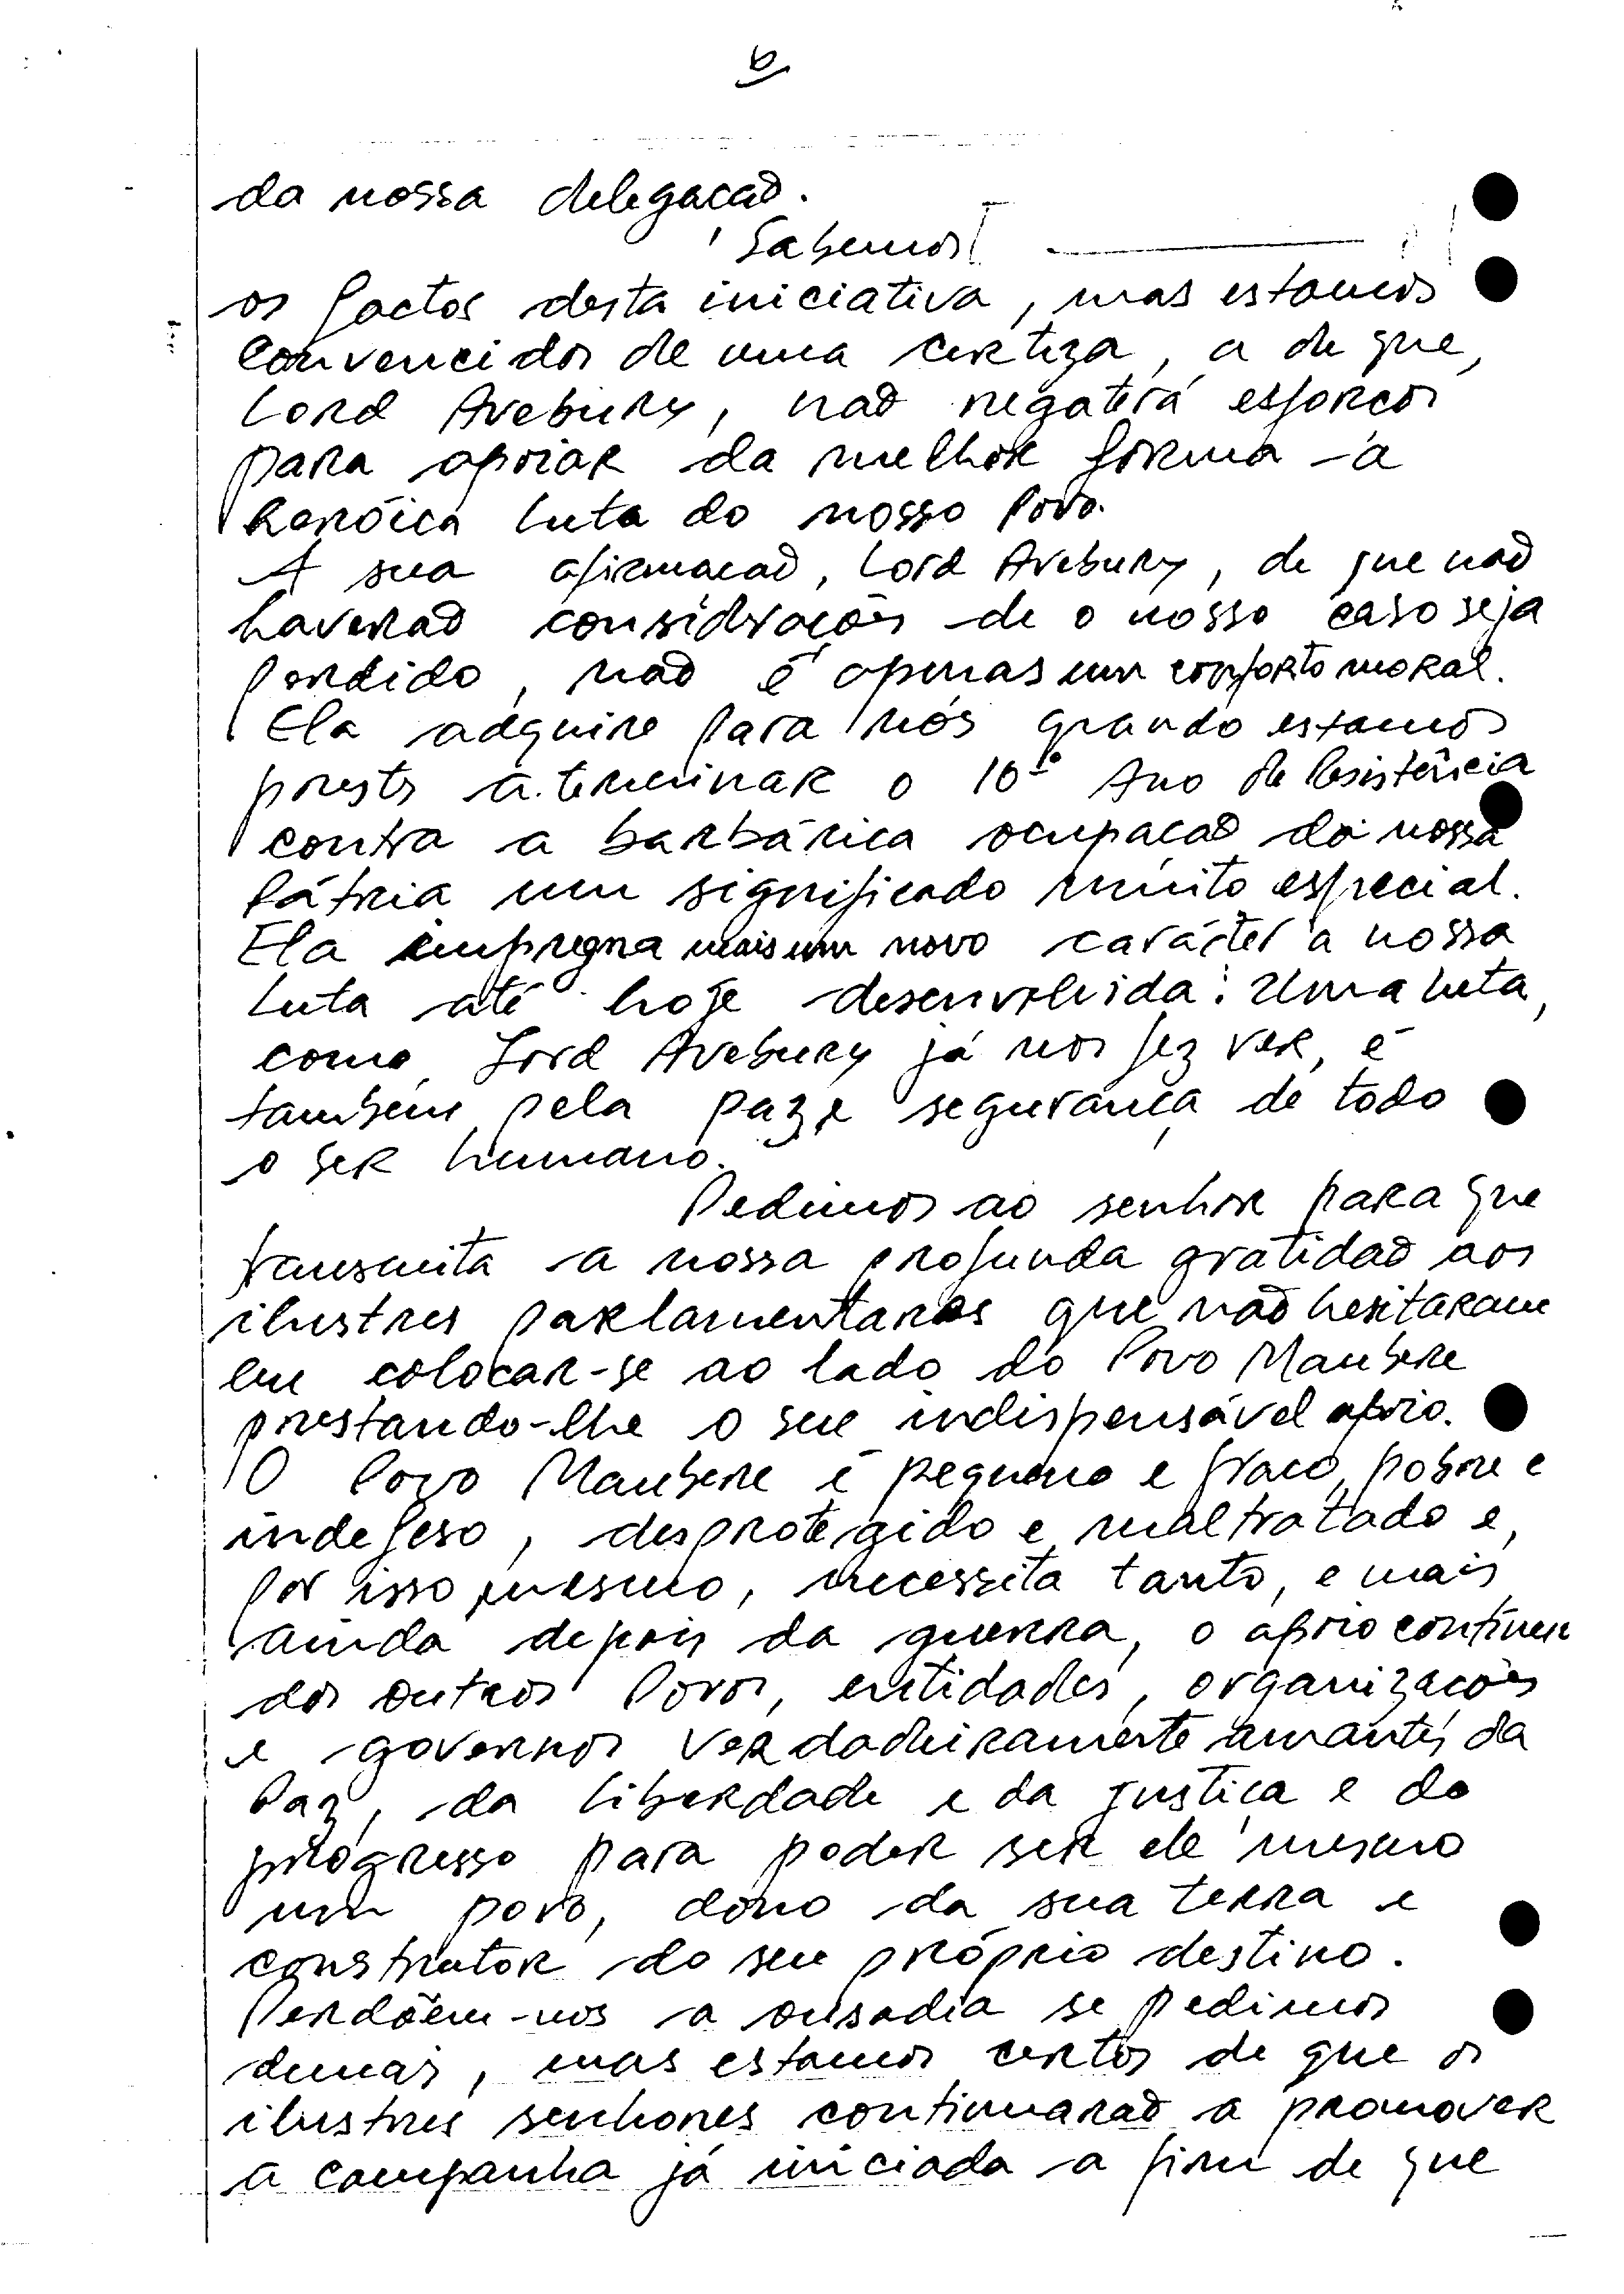 6
da nossa delegação.
Sabemos
os factos desta iniciativa, mas estamos
convencidos de uma certeza, a de que,
Lord Avebury, não regateará esforços
para apoiar da melhor forma à
heróica luta do nosso Povo.
A sua afirmação, Lord Avebury, de que não
haverão considerações de o nosso caso seja
perdido, não é apenas um conforto moral.
Ela adquire para nós quando estamos
prestes a terminar o 10º Ano de Resistência
contra a barbárica ocupação da nossa
Pátria um significado muito especial.
Ela impregna mais um novo carácter a nossa
luta até hoje desenvolvida: Uma luta,
como Lord Avebury já nos fez ver, é
também pela paz e segurança de todo
o ser humano.
Pedimos ao senhor para que
transmita a nossa profunda gratidão aos
ilustres parlamentares que não hesitaram
em colocar-se ao lado do Povo Maubere
prestando-lhe o seu indispensável apoio.
O Povo Maubere é pequeno e fraco, pobre e
indefeso, desprotegido e maltratado e,
por isso mesmo, necessita tanto, e mais
ainda depois da guerra, o apoio contínuo
dos outros Povos, entidades, organizações
e governos verdadeiramente amantes da
Paz, da liberdade e da justiça e do
progresso para poder ser ele mesmo
um povo, dono da sua terra e
construtor do seu próprio destino.
Perdõem-nos a ousadia se pedimos
demais, mas estamos certos de que os
ilustres senhores continuarão a promover
a campanha já iniciada a fim de que